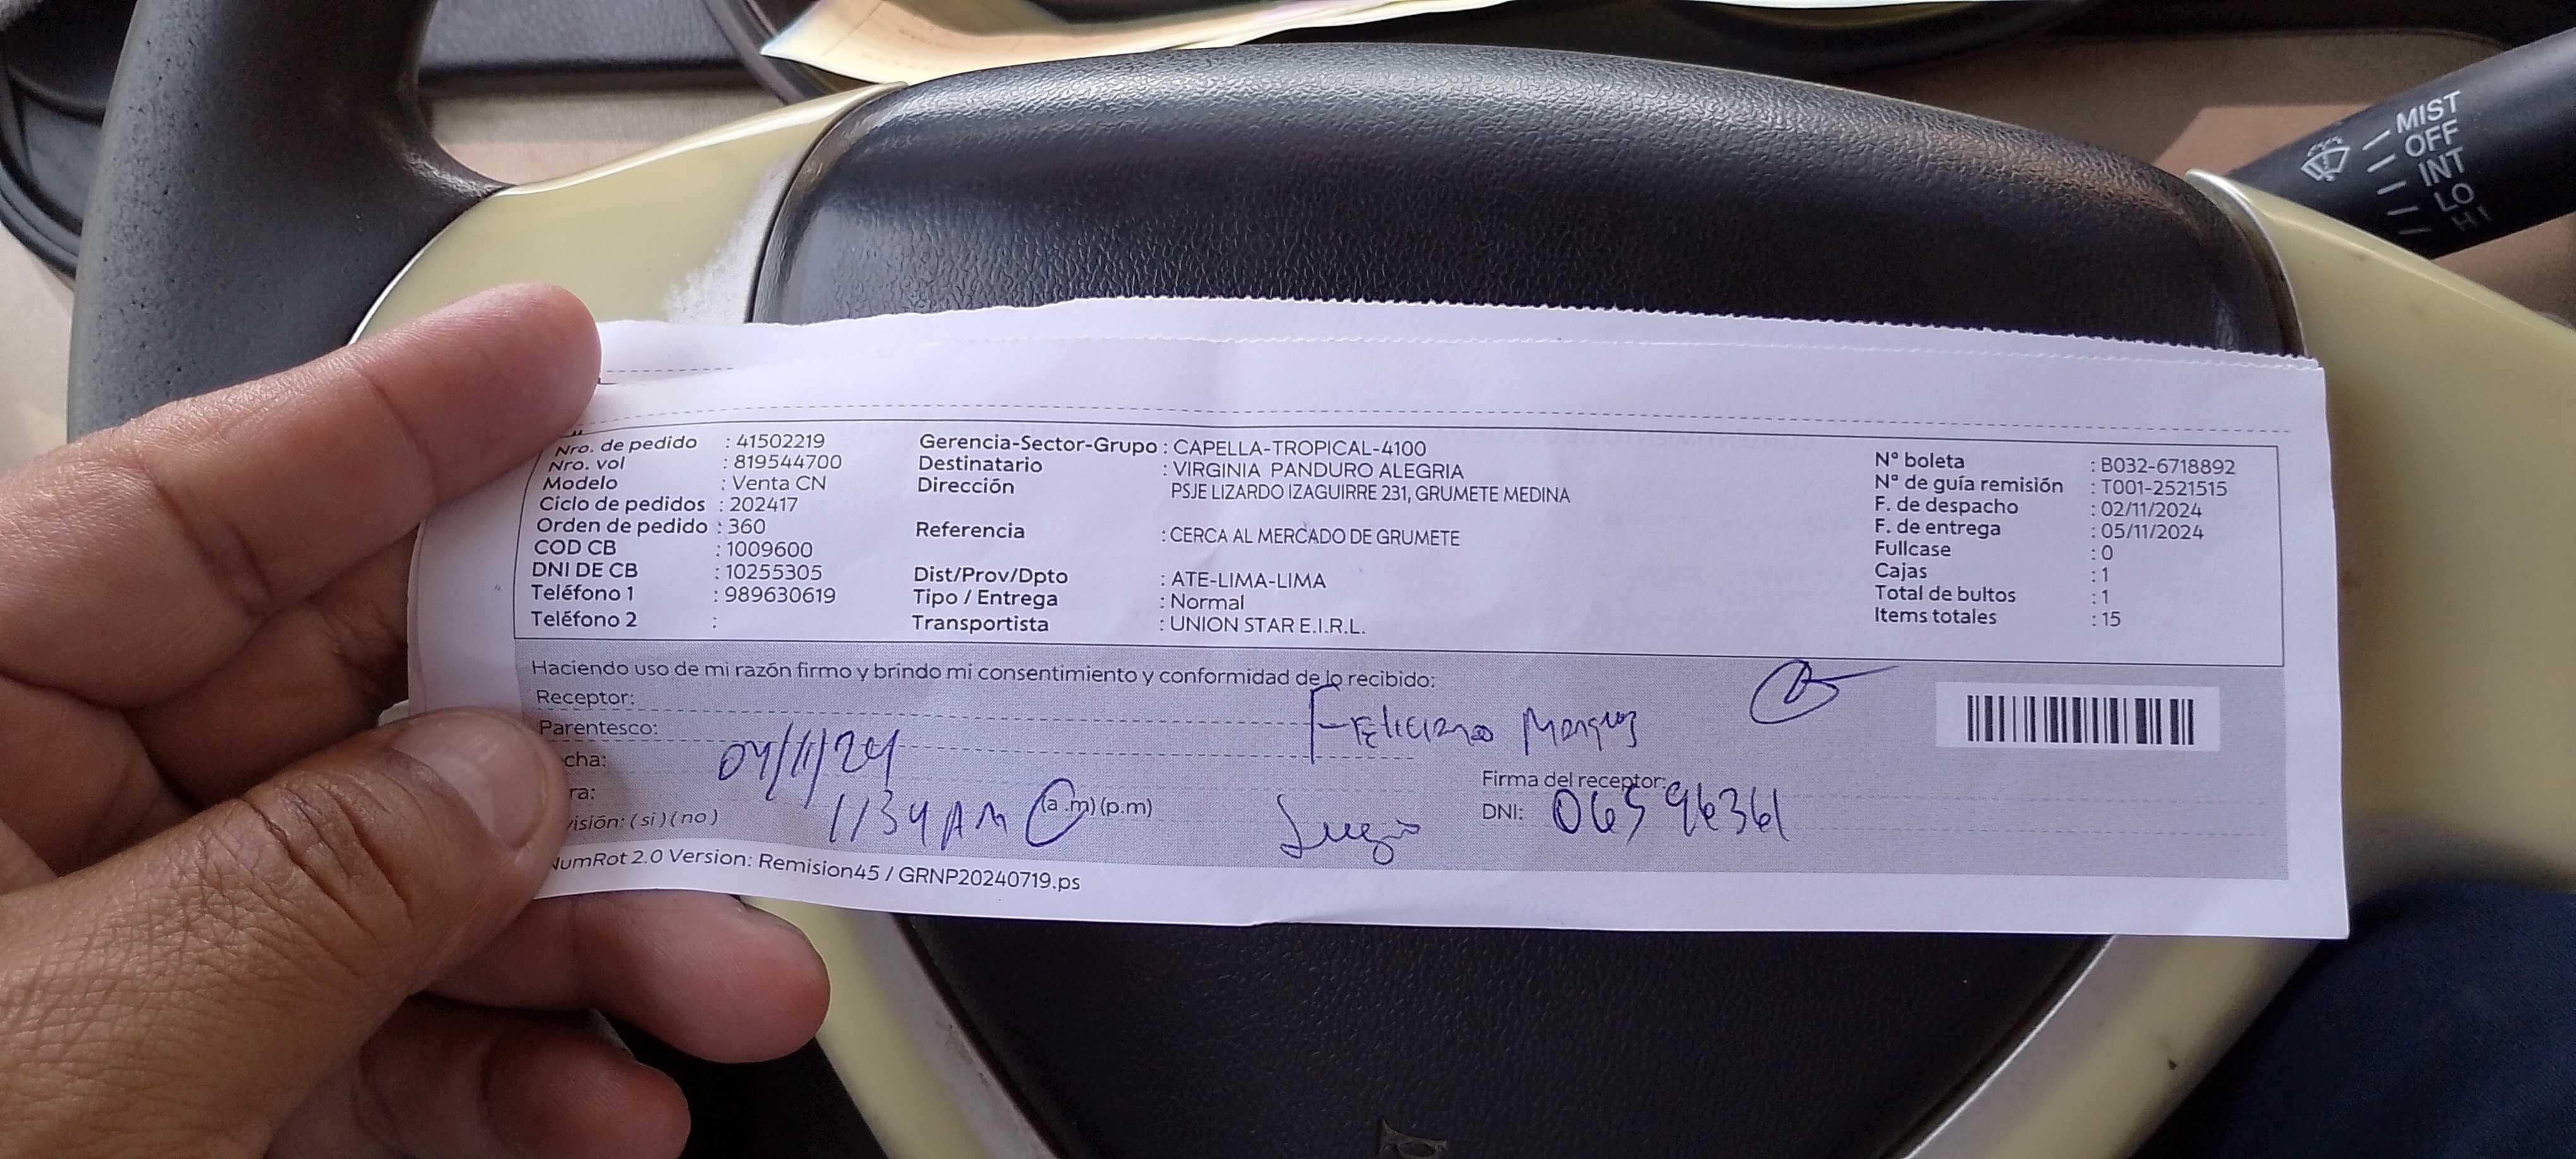 MIST
OFF
INT
LO
HI
Nro. de pedido : 41502219
Nro. vol : 819544700
Modelo : Venta CN
Ciclo de pedidos : 202417
Orden de pedido : 360
COD CB : 1009600
DNI DE CB : 10255305
Teléfono 1 : 989630619
Teléfono 2 :
Gerencia-Sector-Grupo : CAPELLA-TROPICAL-4100
Destinatario : VIRGINIA PANDURO ALEGRIA
Dirección PSJE LIZARDO IZAGUIRRE 231, GRUMETE MEDINA
Referencia : CERCA AL MERCADO DE GRUMETE
Dist/Prov/Dpto : ATE-LIMA-LIMA
Tipo / Entrega : Normal
Transportista : UNION STAR E.I.R.L.
N° boleta : B032-6718892
N° de guía remisión : T001-2521515
F. de despacho : 02/11/2024
F. de entrega : 05/11/2024
Fullcase : 0
Cajas : 1
Total de bultos : 1
Items totales : 15
Haciendo uso de mi razón firmo y brindo mi consentimiento y conformidad de lo recibido:
Receptor: Feliciano
Parentesco:
cha: 04/11/24
ra: 1134 AM (a .m) (p.m)
visión: ( si ) ( no )
Firma del receptor:
DNI: 06596361
NumRot 2.0 Version: Remision45 / GRNP20240719.ps